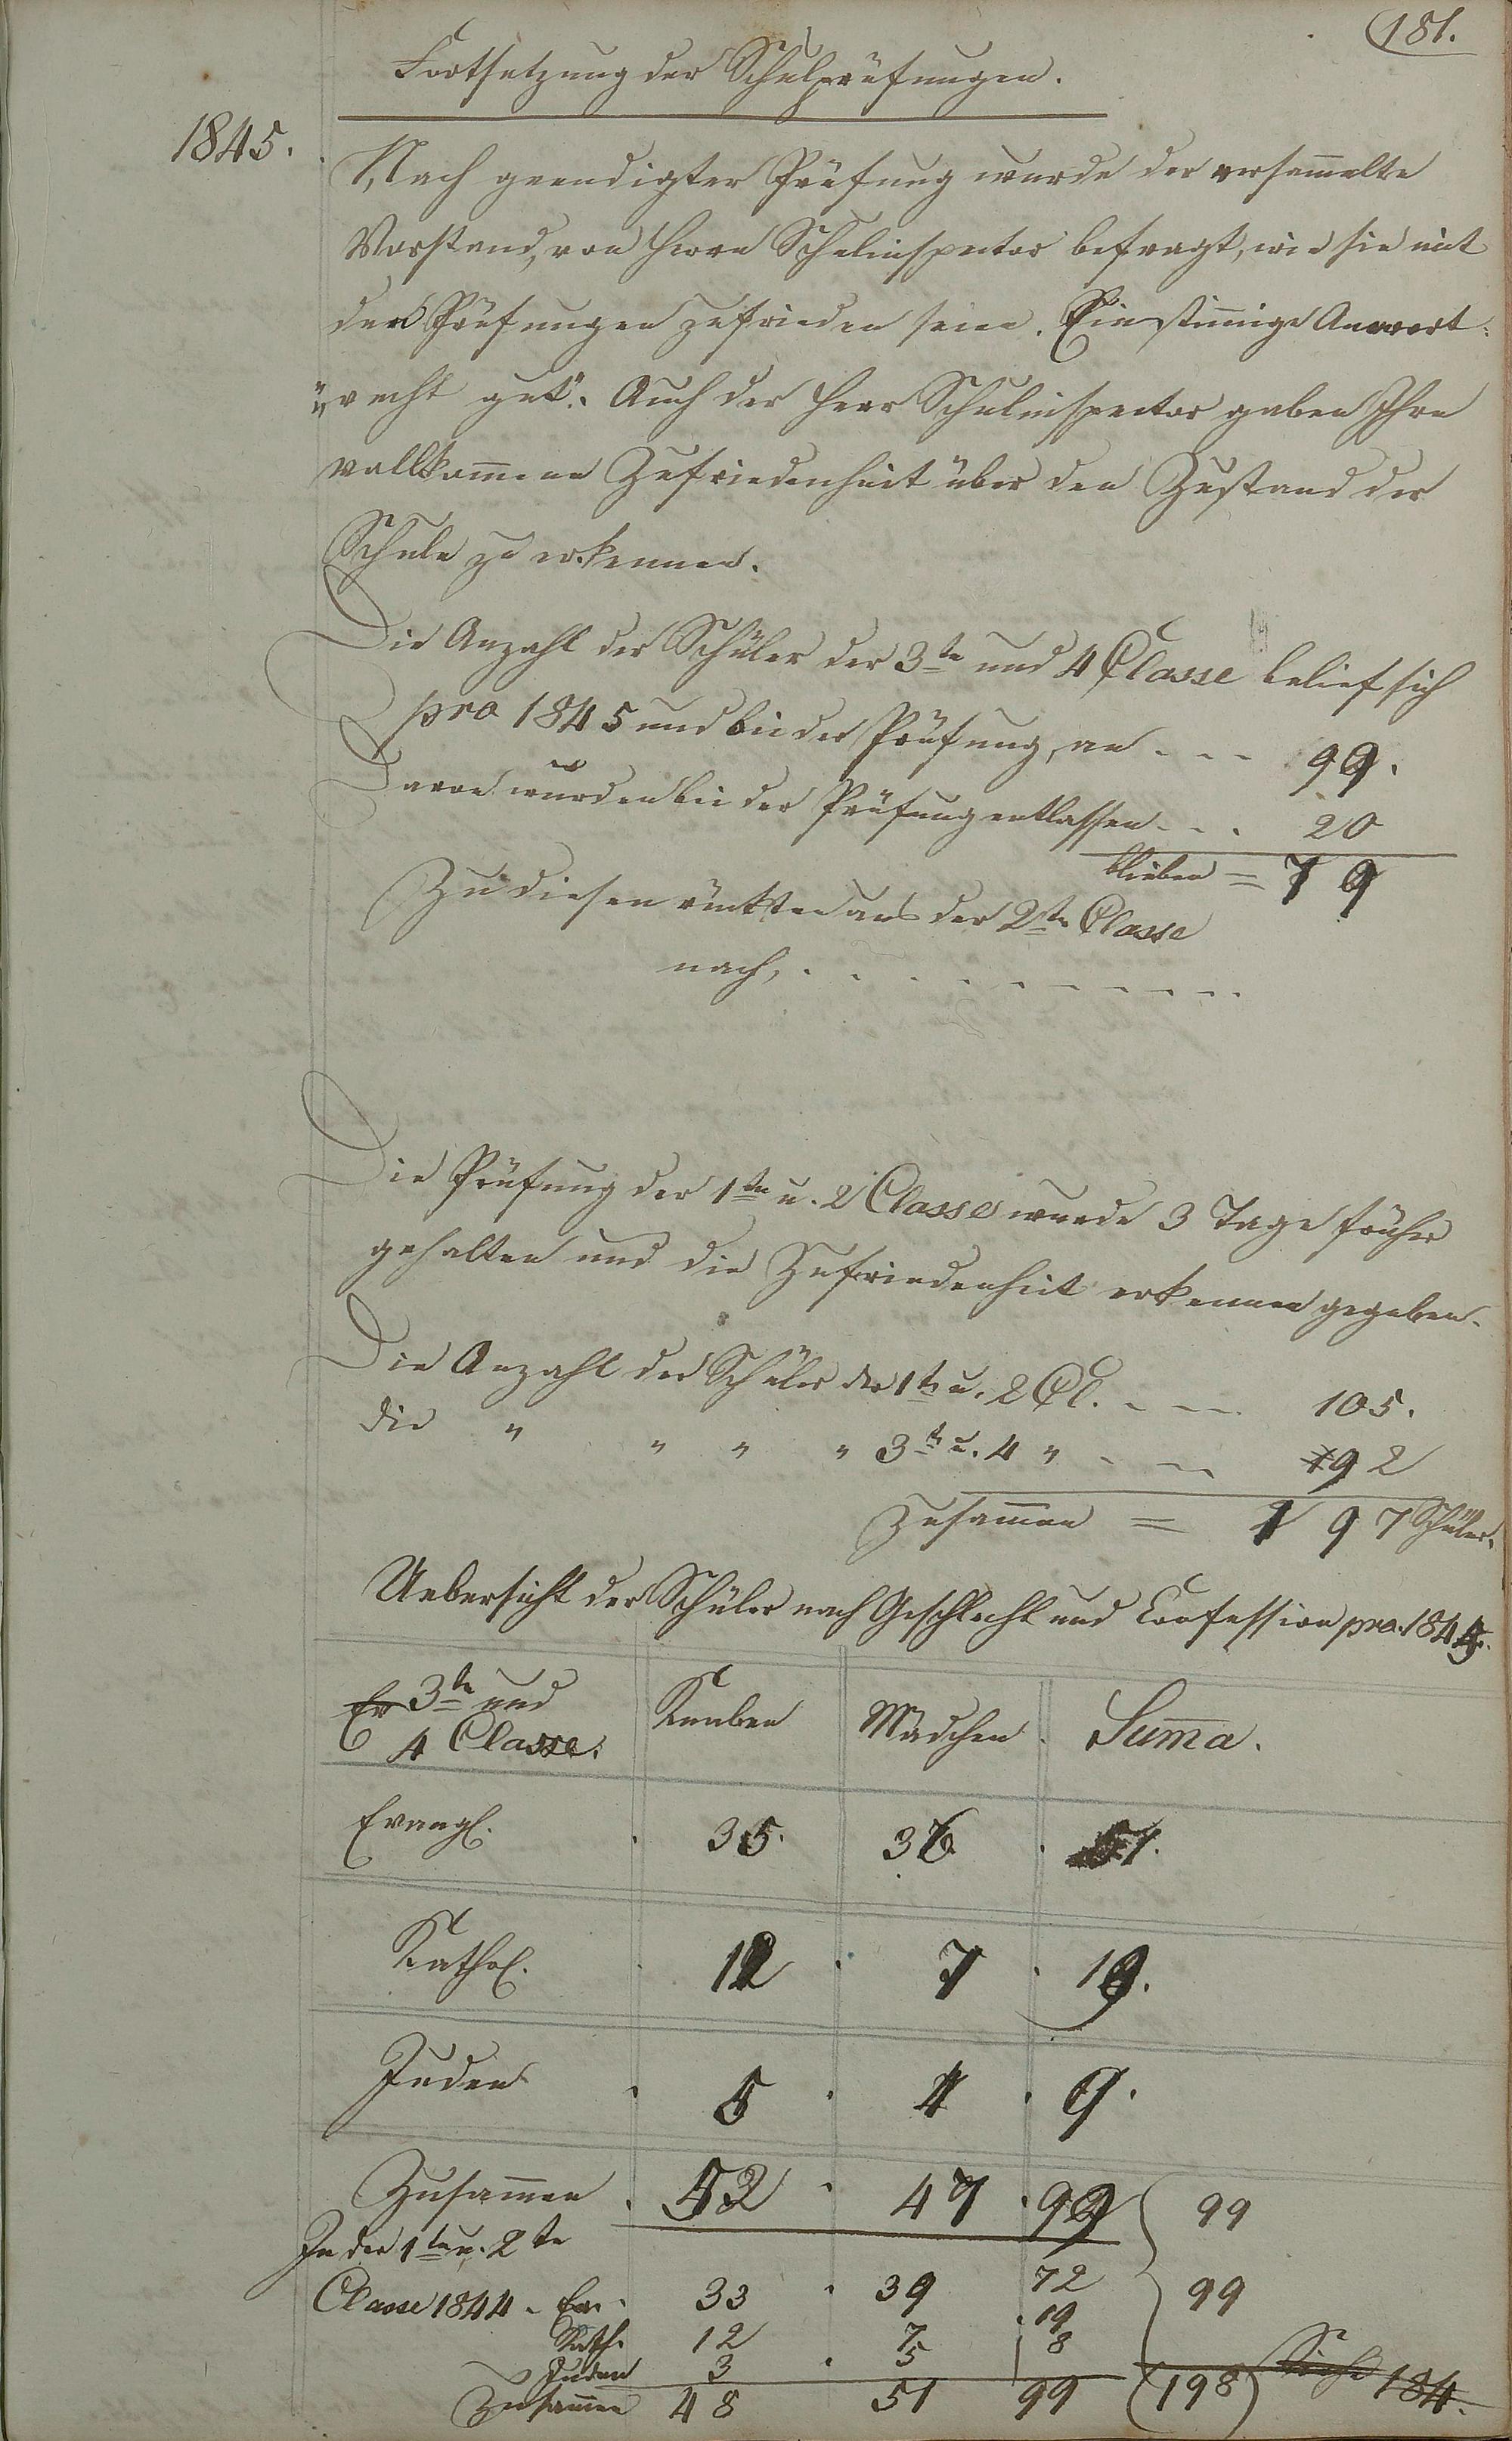 181.
Fortsetzung der Schulprüfungen.
1845.
Nach geendigter Prüfung wurde der versam̅elte
Vorstand, von Herrn Schulinspector befragt, wie sie mit
der Prüfungen zufrieden seien. Einstim̅ige Anwort:
„recht gut“. Auch der Herr Schulinspector gaben Ihre
vollkom̅ene Zufriedenheit über den Zustand der
Schule zu erkennen.
Die Anzahl der Schüler der 3te und 4 Classe belief sich
pro 1845 und bei der Prüfung, an - - - 99.
Davon wurden bei der Prüfung entlassen - - . 20
blieben = 79
Zu diesen rückten aus der 2te Classe
nach, . . . . - - - - - -
Die Prüfung der 1te u. 2 Classe wurde 3 Tage früher
gehalten und die Zufriedenheit erkennen gegeben.
Die Anzahl der Schüler der 1te u. 2 Cl. - - - 105.
die " " " " 3te u. 4 " - - - 92
Zusam̅en = 197 Schüler.
Uebersicht der Schüler nach Geschlecht und Confession pro. 1845.
Ev 3te und
4 Classe. Knaben Mädchen. Sum̅a.
Evangl. 35. 36 . 51.
Kathol. 12 . 7 . 19.
Juden . 5 . 4 . 9.
Zusam̅en . 52 . 47 . 99 99
In der 1te u. 2te
Classe 1844 . Ev. 33 . 39 72 99
Kath. 12 7 19
Juden 3 . 5 8
Zusam̅en 48 51 99 (198) Siehe 184.